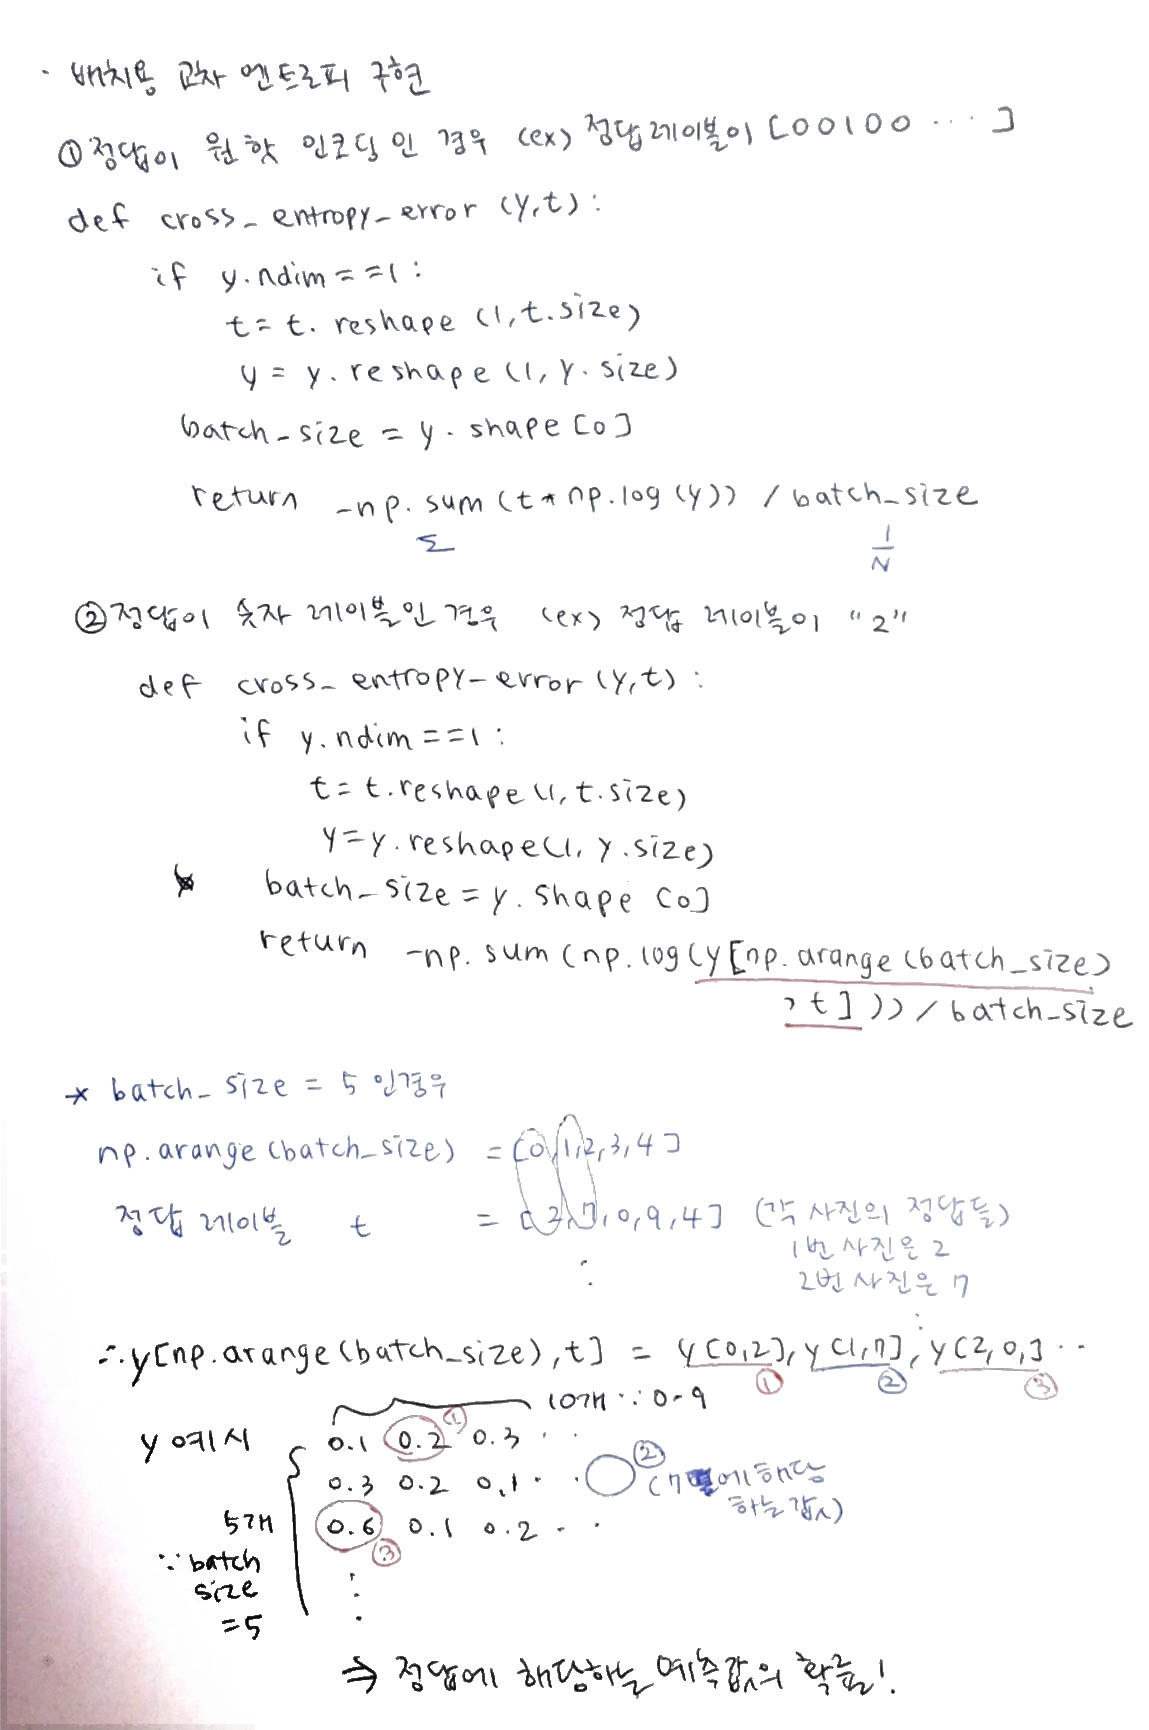 · 배치용 교차 엔트로피 구현
① 정답이 원핫 인코딩인 경우 (ex) 정답레이블이 [00100 ··· ]
def cross_entropy_error (y,t) :
if y.ndim ==1 :
t = t. reshape (1, t.size)
y = y. reshape (1, y. size)
batch_size = y. shape [0]
return -np. sum (t * np.log (y)) / batch_size
Σ 1/N
② 정답이 숫자 레이블인 경우 (ex) 정답 레이블이 "2"
def cross_entropy_error (y,t) :
if y.ndim ==1 :
t = t.reshape (1, t.size)
y = y.reshape(1, y.size)
* batch_size = y. shape [0]
return -np. sum (np.log (y[np. arange (batch_size)
, t] )) / batch_size
* batch_size = 5 인경우
np.arange (batch_size) = [0,1,2,3,4]
정답 레이블 t = [2,7,0,9,4] (각 사진의 정답들)
1번 사진은 2
2번 사진은 7
⋮ ⋮
∴ y[np.arange (batch_size), t] = y [0,2], y [1,7], y [2, 0,] ··
① ② ③
10개 ∵ 0-9
y 예시 0.1 0.2 ① 0.3 · ·
0.3 0.2 0.1 · · ② (7열에 해당
하는 값)
5개 0.6 0.1 0.2 · ·
③
∵ batch
size
=5
⋮
⇒ 정답에 해당하는 예측값의 확률!